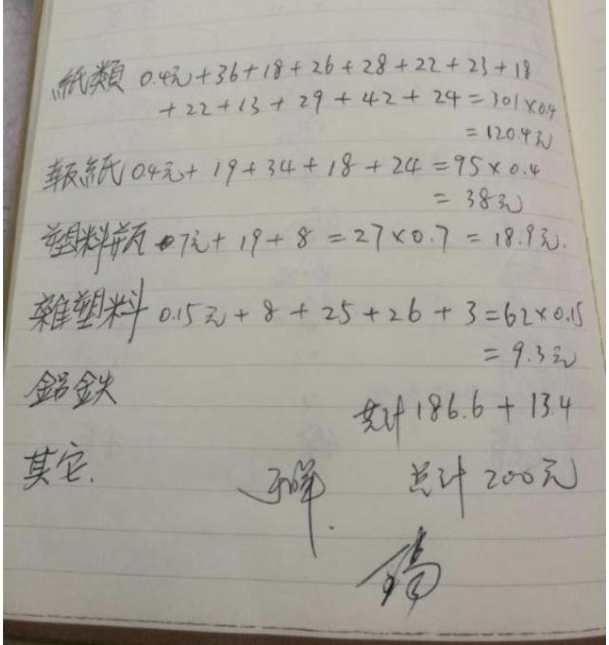 紙類 0.4元+36+18+26+28+22+23+18
+22+13+29+42+24=301×0.4
=120.4元
報紙 0.4元+19+34+18+24=95×0.4
=38元
塑料瓶 0.7元+19+8=27×0.7=18.9元.
雜塑料 0.15元+8+25+26+3=62×0.15
=9.3元
鋁鉄
共計186.6+13.4
其它.
总计200元